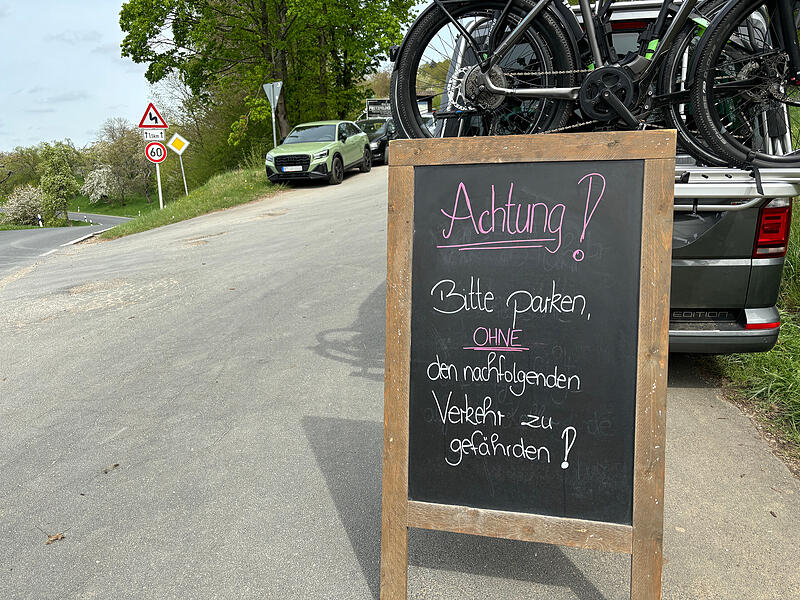 Achtung!
Bitte parken,
OHNE
den nachfolgenden
Verkehr zu
gefährden!
60
EDITION